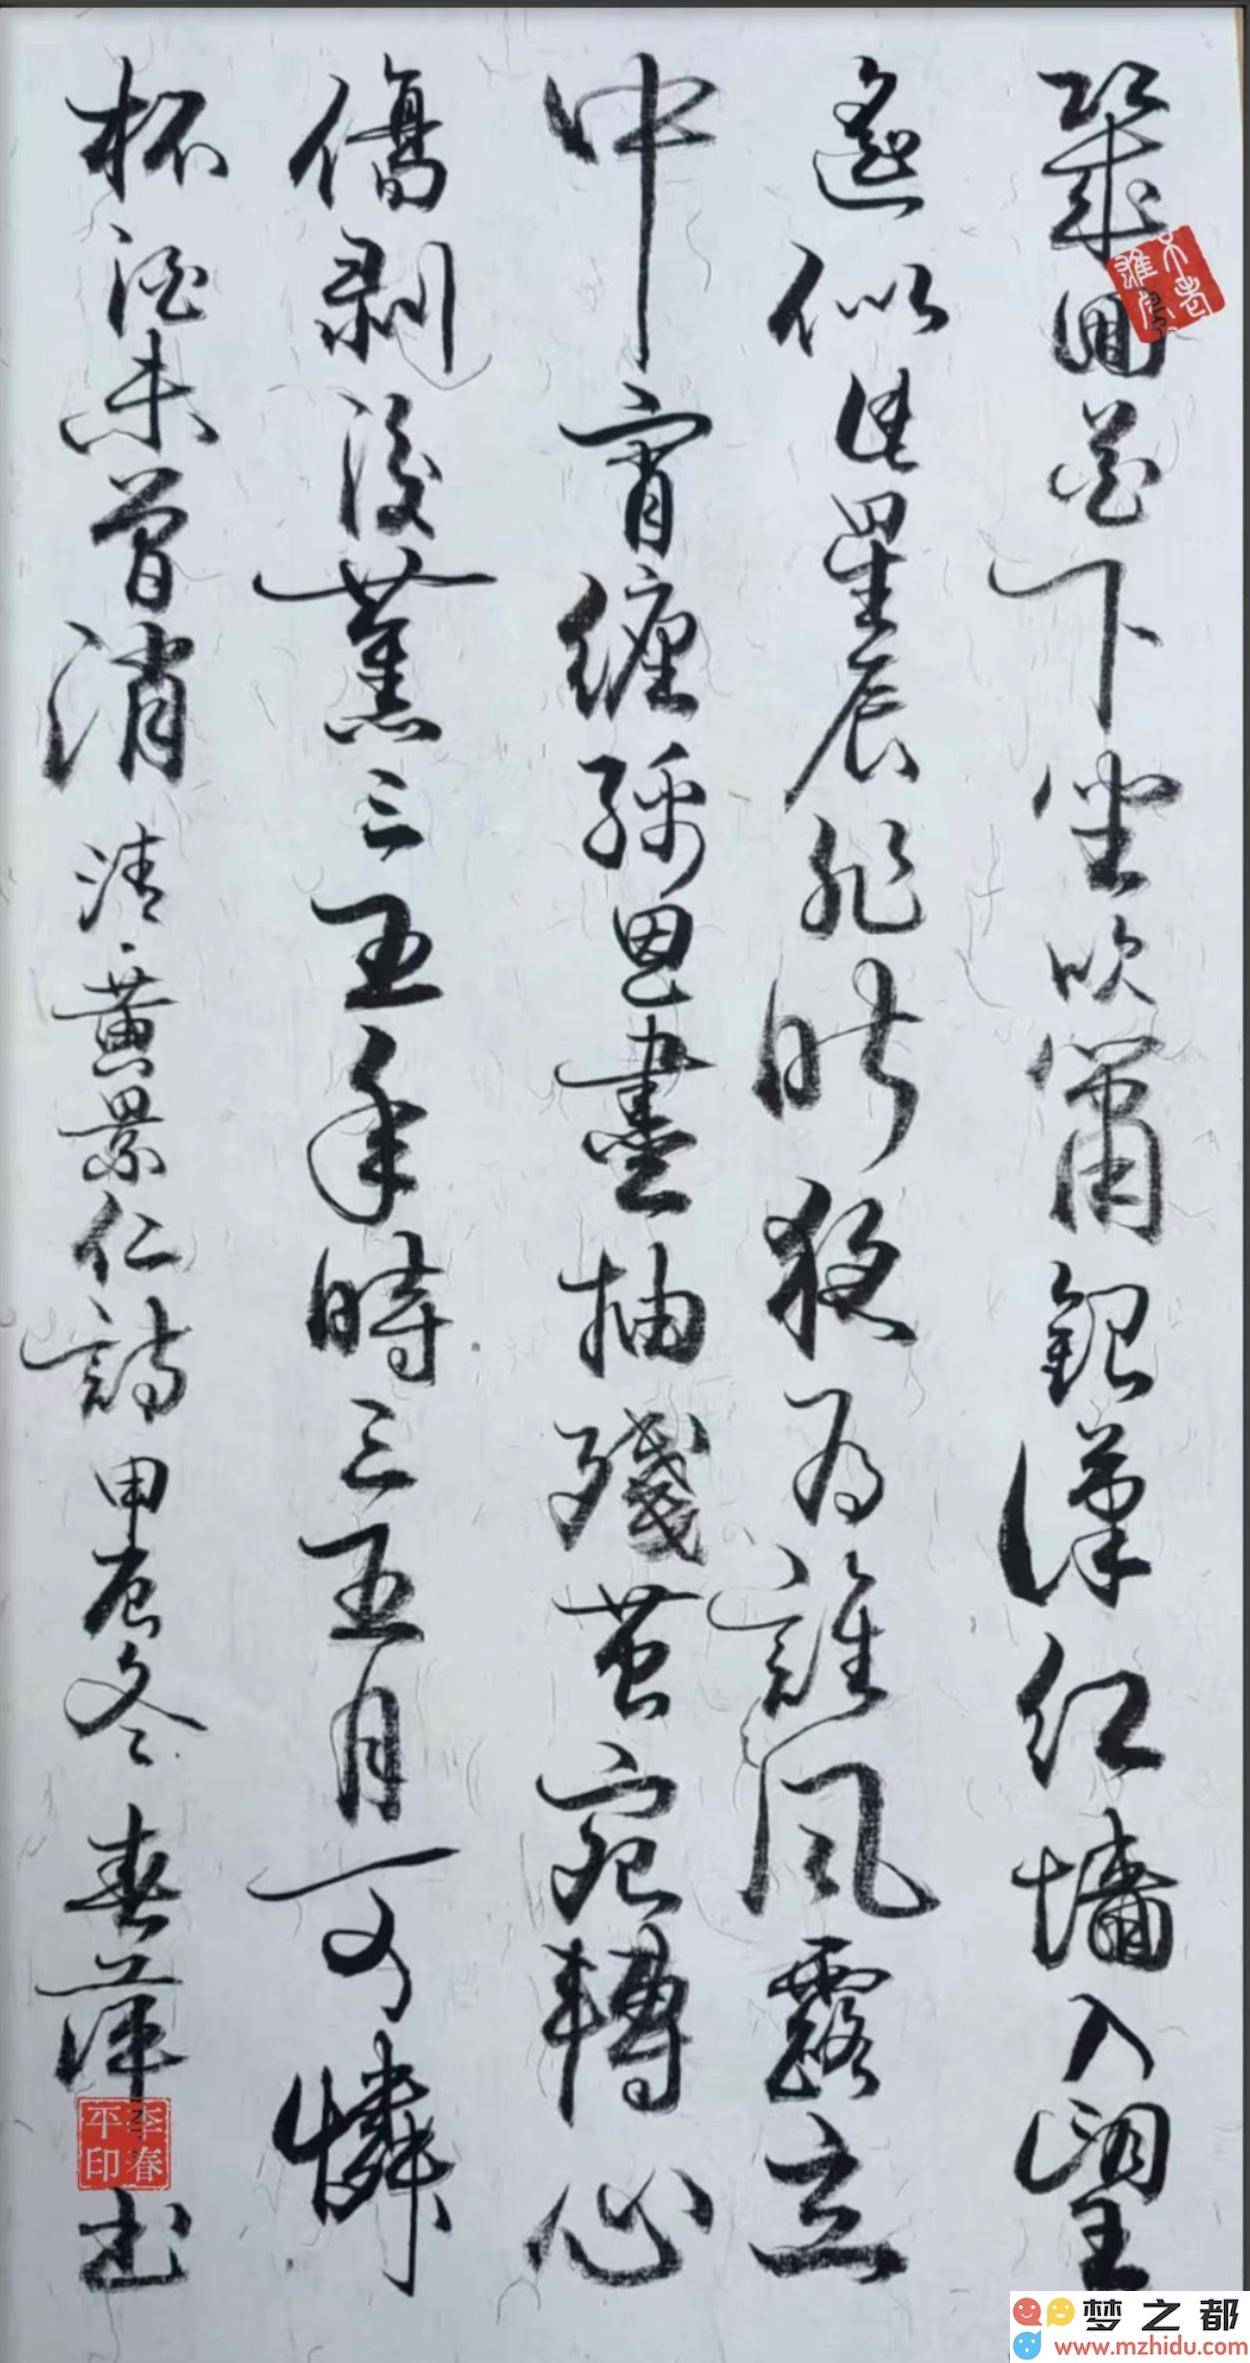 幾回花下坐吹簫銀漢紅墻入望
遙似此星辰非昨夜為誰風露立
中宵纏綿思盡抽殘繭宛轉心
傷剥後蕉三五年時三五月可憐
杯酒未曾消 清黄景仁詩 甲辰冬 春萍 书
李春
平印
梦之都
www.mzhidu.com